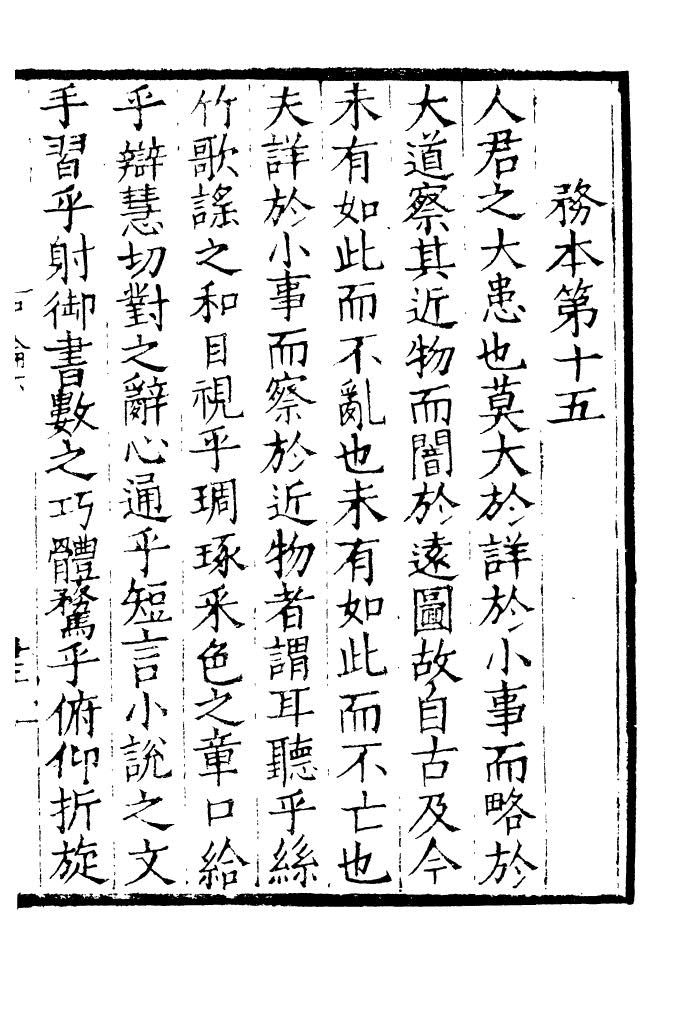 務本第十五
人君之大患也莫大於詳於小事而略於
大道察其近物而闇於遠圖故自古及今
未有如此而不亂也未有如此而不亡也
夫詳於小事而察於近物者謂耳聽乎絲
竹歌謠之和目視乎琱琢采色之章口給
乎辯慧切對之辭心通乎短言小說之文
手習乎射御書數之巧體騖乎俯仰折旋